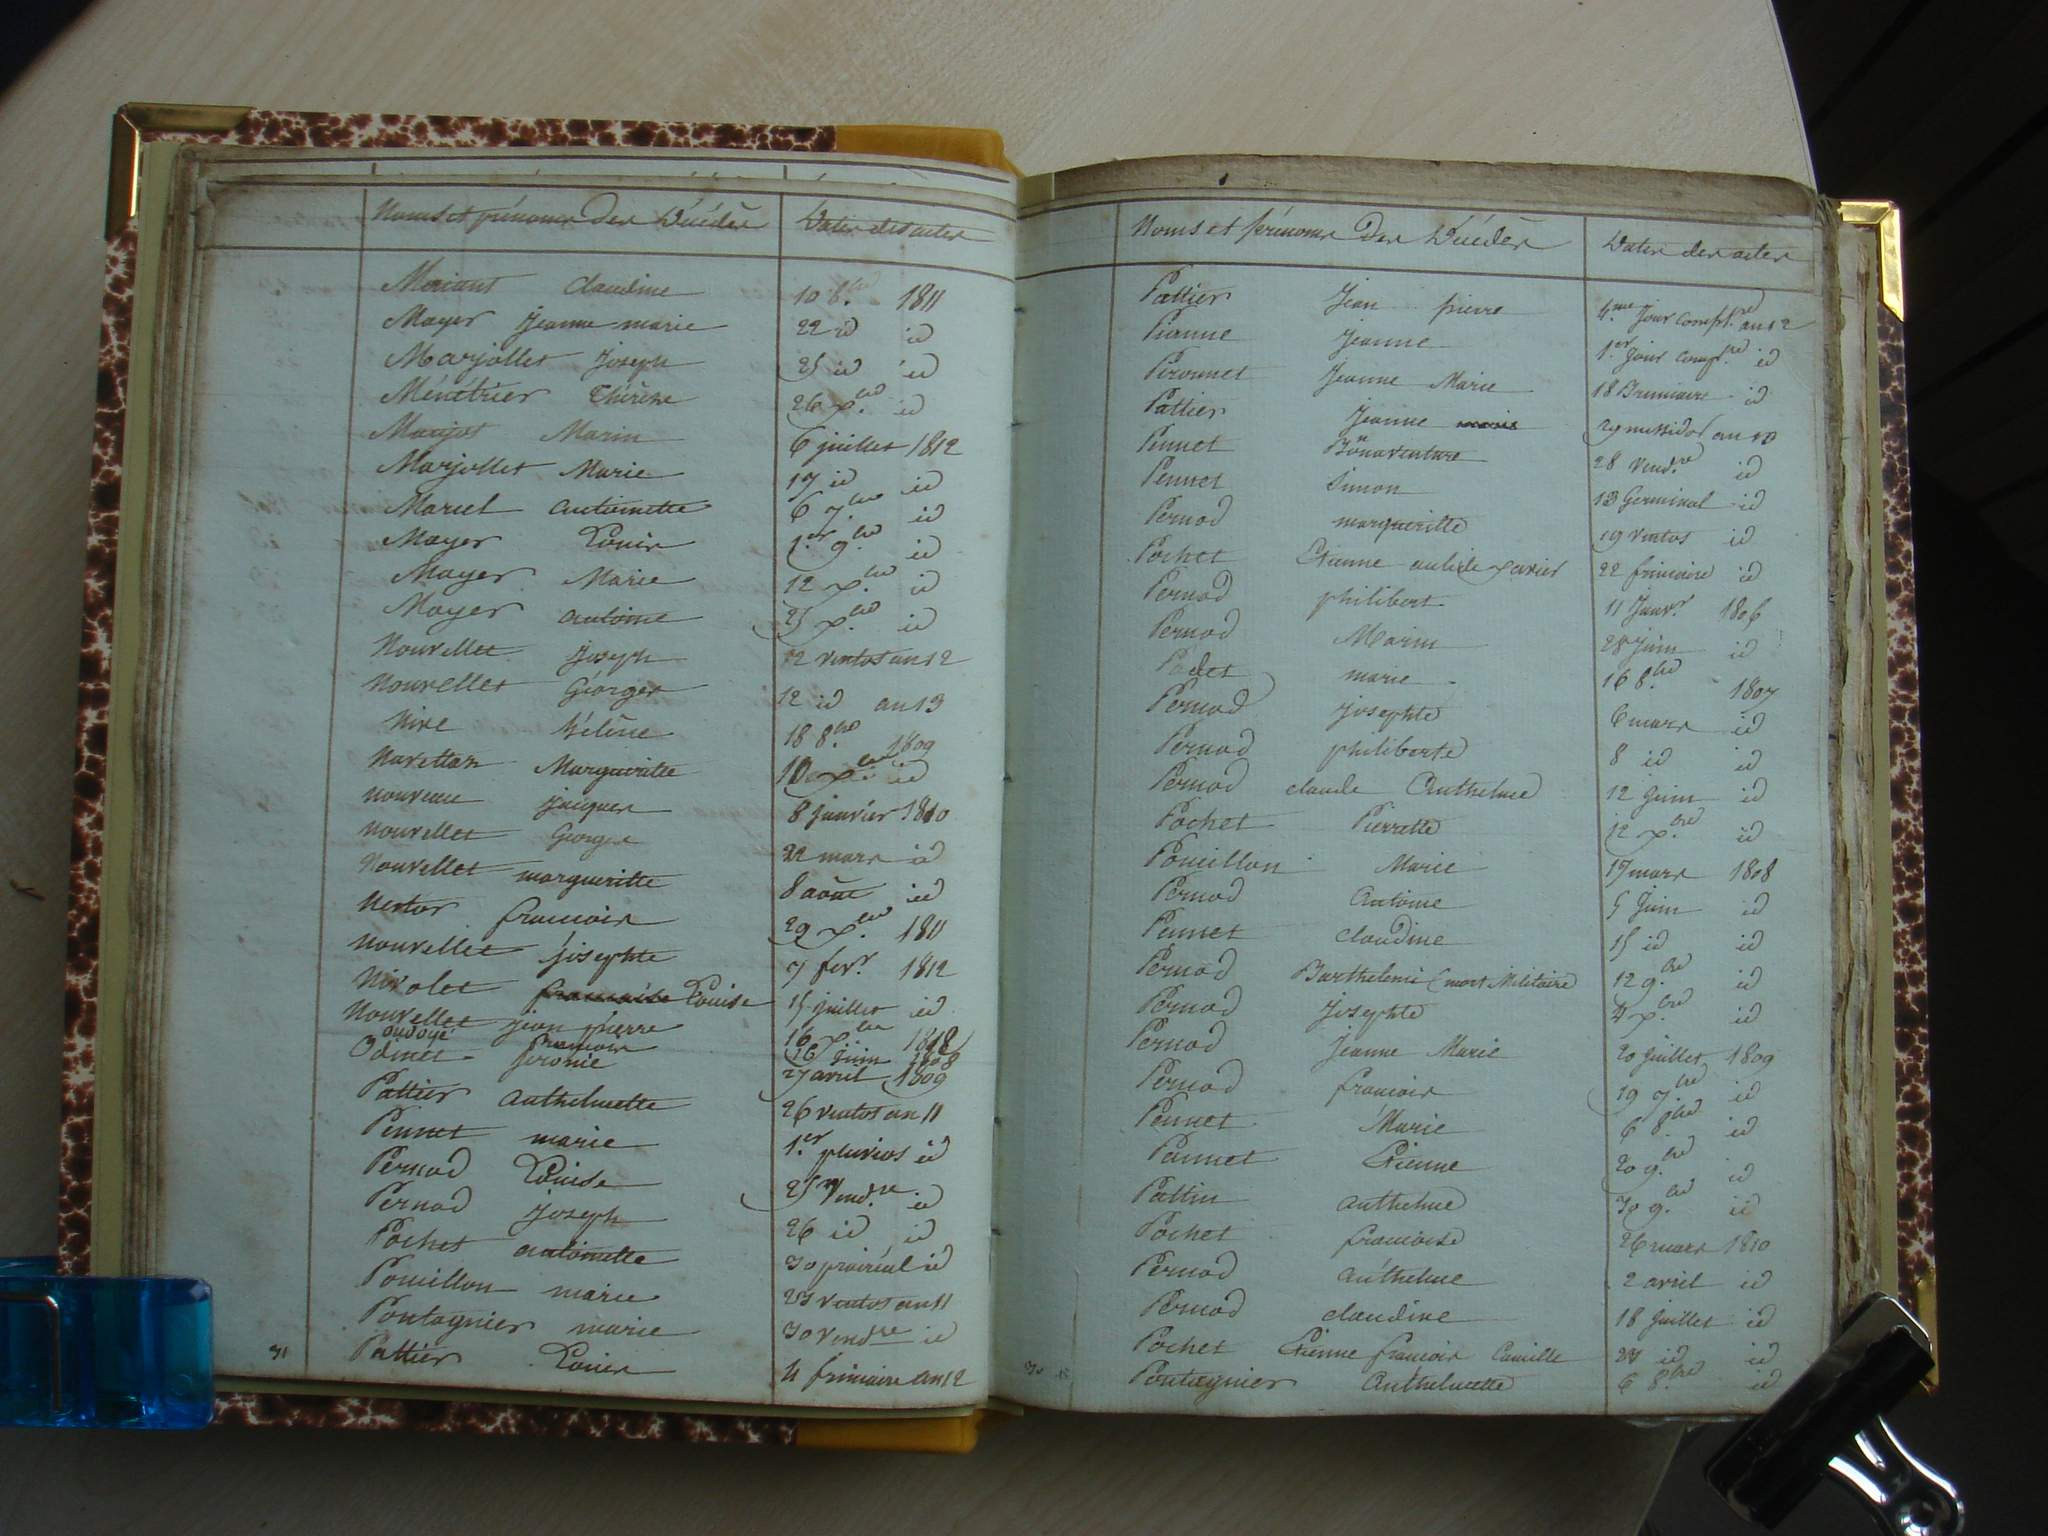 Noms et prénoms des Décédés Dates des actes
Moriant Claudine 10 8.bre 1811
Mayer Jeanne marie 22 id id
Marjollet Joseph 25 id id
Ménétrier Thérèze 26 x.bre id
Marjot Marin 6 juillet 1812
Marjollet Marie 17 id id
Maruel antoinette 6 7.bre id
Mayer Louis 1.er 9.bre id
Mayer Marie 12 x.bre id
Mayer antoine 25 x.bre id
Nouvellet Joseph 12 ventos an 12
Nouvellet Georges 12 id an 13
Nire hélène 18 8.bre 1809
Navettaz Margueritte 10 x.bre id
nouveau jacques 8 janvier 1810
nouvellet George 22 mars id
Nouvellet margueritte 8 août id
Nestor francois 29 x.bre 1811
nouvellet josephte 7 fevr. 1812
Nivolet francoise Louise 15 juillet id
Nouvellet jean pierre 16 x.bre 1818
oudoyé francois 26 juin 1808
Odinet feronie 27 avril 1809
Pattier anthelmette 26 ventos an 11
Pennet marie 1.er pluvios id
Pernod Louise 25 Vend.re id
Pernod joseph 26 id id
Pochet antoinette 30 prairéal id
Pouillon marie 23 ventos an 11
Pontagnier marie 30 vendre id
31 Pattier Louis 4 frimaire an 12
Noms et prénoms Des Décédés Dates des actes
Pattier Jean pierre 4.me Jour compl.re an 12
Pianne Jeanne 1.er jour comp.re id
Peronnet Jeanne Marie 18 Brumaire id
Pattier Jeanne marie 29 messidol an 10
Pennet Bonaventure 28 Vend.re id
Pennet Simon 13 Germinal id
Pernod margueritte 19 ventos id
Pochet Etienne aulide xavier 22 frimaire id
Pernod philibert 11 Janvr 1806
Pernod Marin 28 Juin id
Podet marie 16 8.bre 1807
Pernod josephte 6 mars id
Pernod philiberte 8 id id
Pernod claude Anthelme 12 juin id
Pochet Pierrette 12 x.bre id
Pouillon Marie 17 mars 1808
Pernod Antoine 5 Juin id
Pennet claudine 15 id id
Pernod Barthelemi (mort Militaire 12 9.bre id
Pernod Josephte 4 x.bre id
Pernod Jeanne Marie 20 juillet 1809
Pernod francois 19 7.bre id
Pennet Marie 6 8.bre id
Pannet Etienne 20 9.bre id
Pattin anthelme 30 9.bre id
Pochet francoise 26 mars 1810
Pernod anthelme 2 avril id
Pernod claudine 18 juillet id
Pochet Etienne francois Camille 27 id id
Pontagnier Anthelmette 6 8.bre id